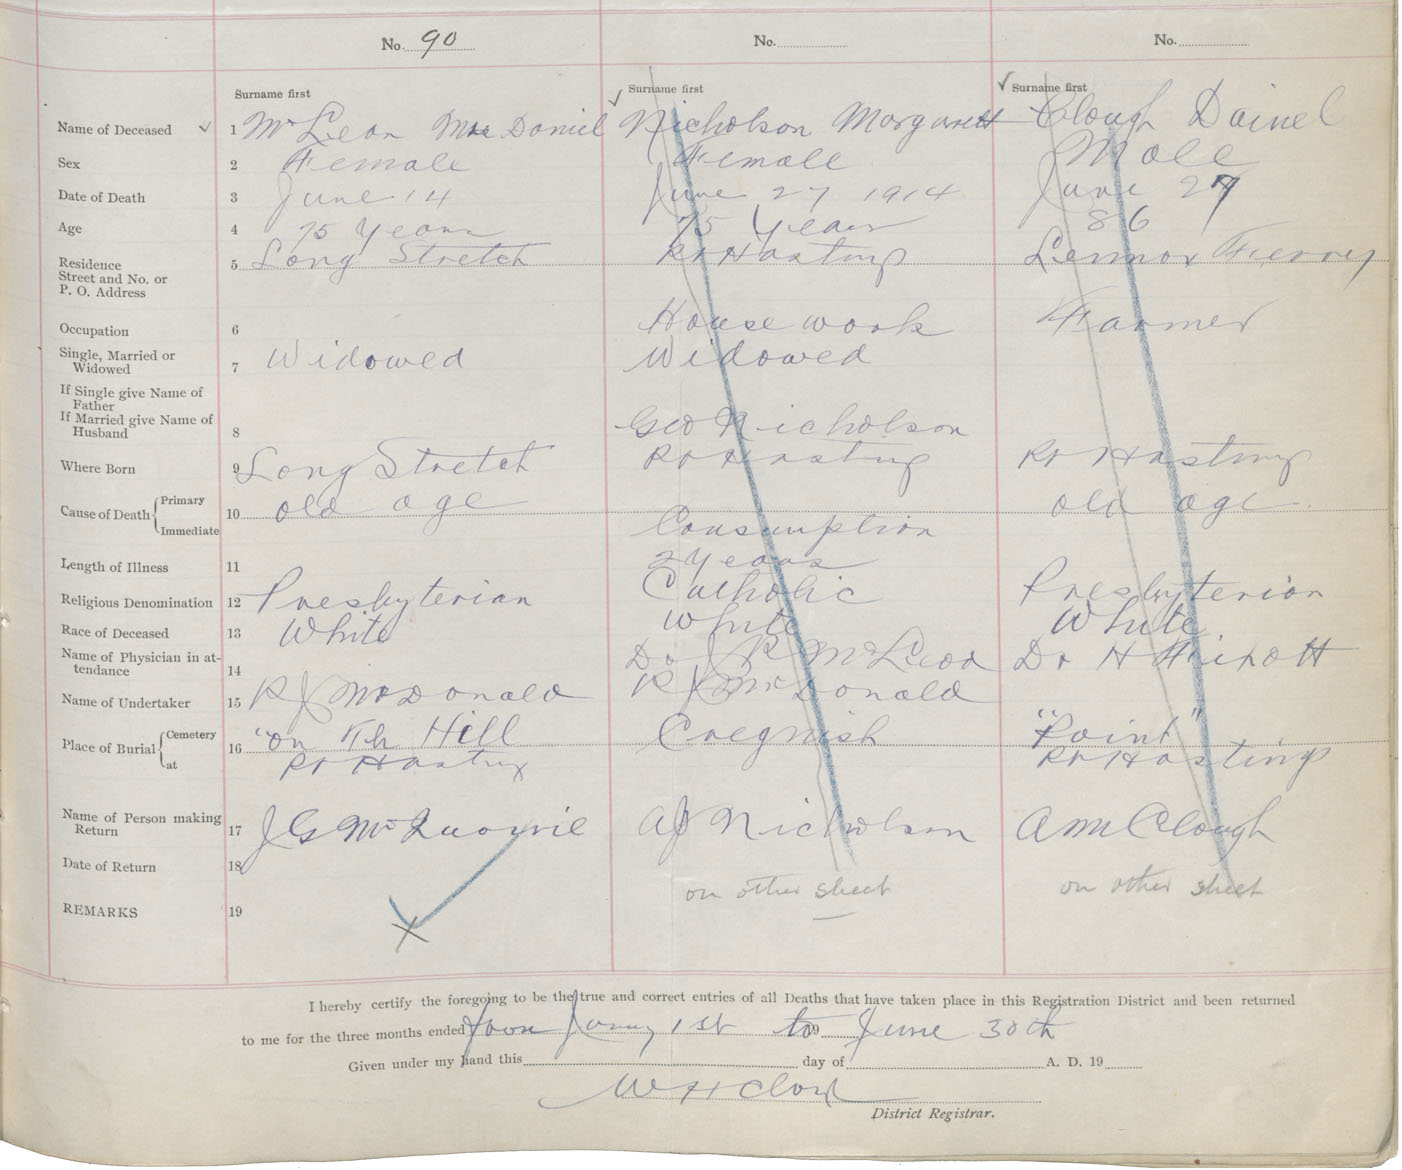 No. 90 No. No.
Surname first Surname first Surname first
Name of Deceased 1 McLean Mrs Daniel Nicholson Margarett Clough Dainel
Sex 2 Female Female Male
Date of Death 3 June 14 June 27 1914 June 27
Age 4 75 Years 75 Years 86
Residence 5 Long Stretch Pt Hasting Lennox Ferrey
Street and No. or
P. O. Address
Occupation 6 House work Farmer
Single, Married or 7 Widowed Widowed
Widowed
If Single give Name of
Father
If Married give Name of
Husband 8 Geo Nicholson
Where Born 9 Long Stretch Pt Hasting Pt Hasting
Cause of Death Primary 10 old age old age
Immediate Consumption
Length of Illness 11 2 years
Religious Denomination 12 Presbyterian Catholic Presbyterion
Race of Deceased 13 White White White
Name of Physician in at- 14 Dr J R McLeod Dr H
tendance
Name of Undertaker 15 R J McDonald R J McDonald
Place of Burial Cemetery 16 "on Th Hill Cregnish "Point"
at Pt Hasting Pt Hastings
Name of Person making
Return 17 J G McQuarrie A J Nicholson A M Clough
Date of Return 18
REMARKS 19 on other sheet on other sheet
I hereby certify the foregoing to be the true and correct entries of all Deaths that have taken place in this Registration District and been returned
to me for the three months ended from Janry 1st to 19 June 30th
Given under my hand this day of A. D. 19
W H
District Registrar.